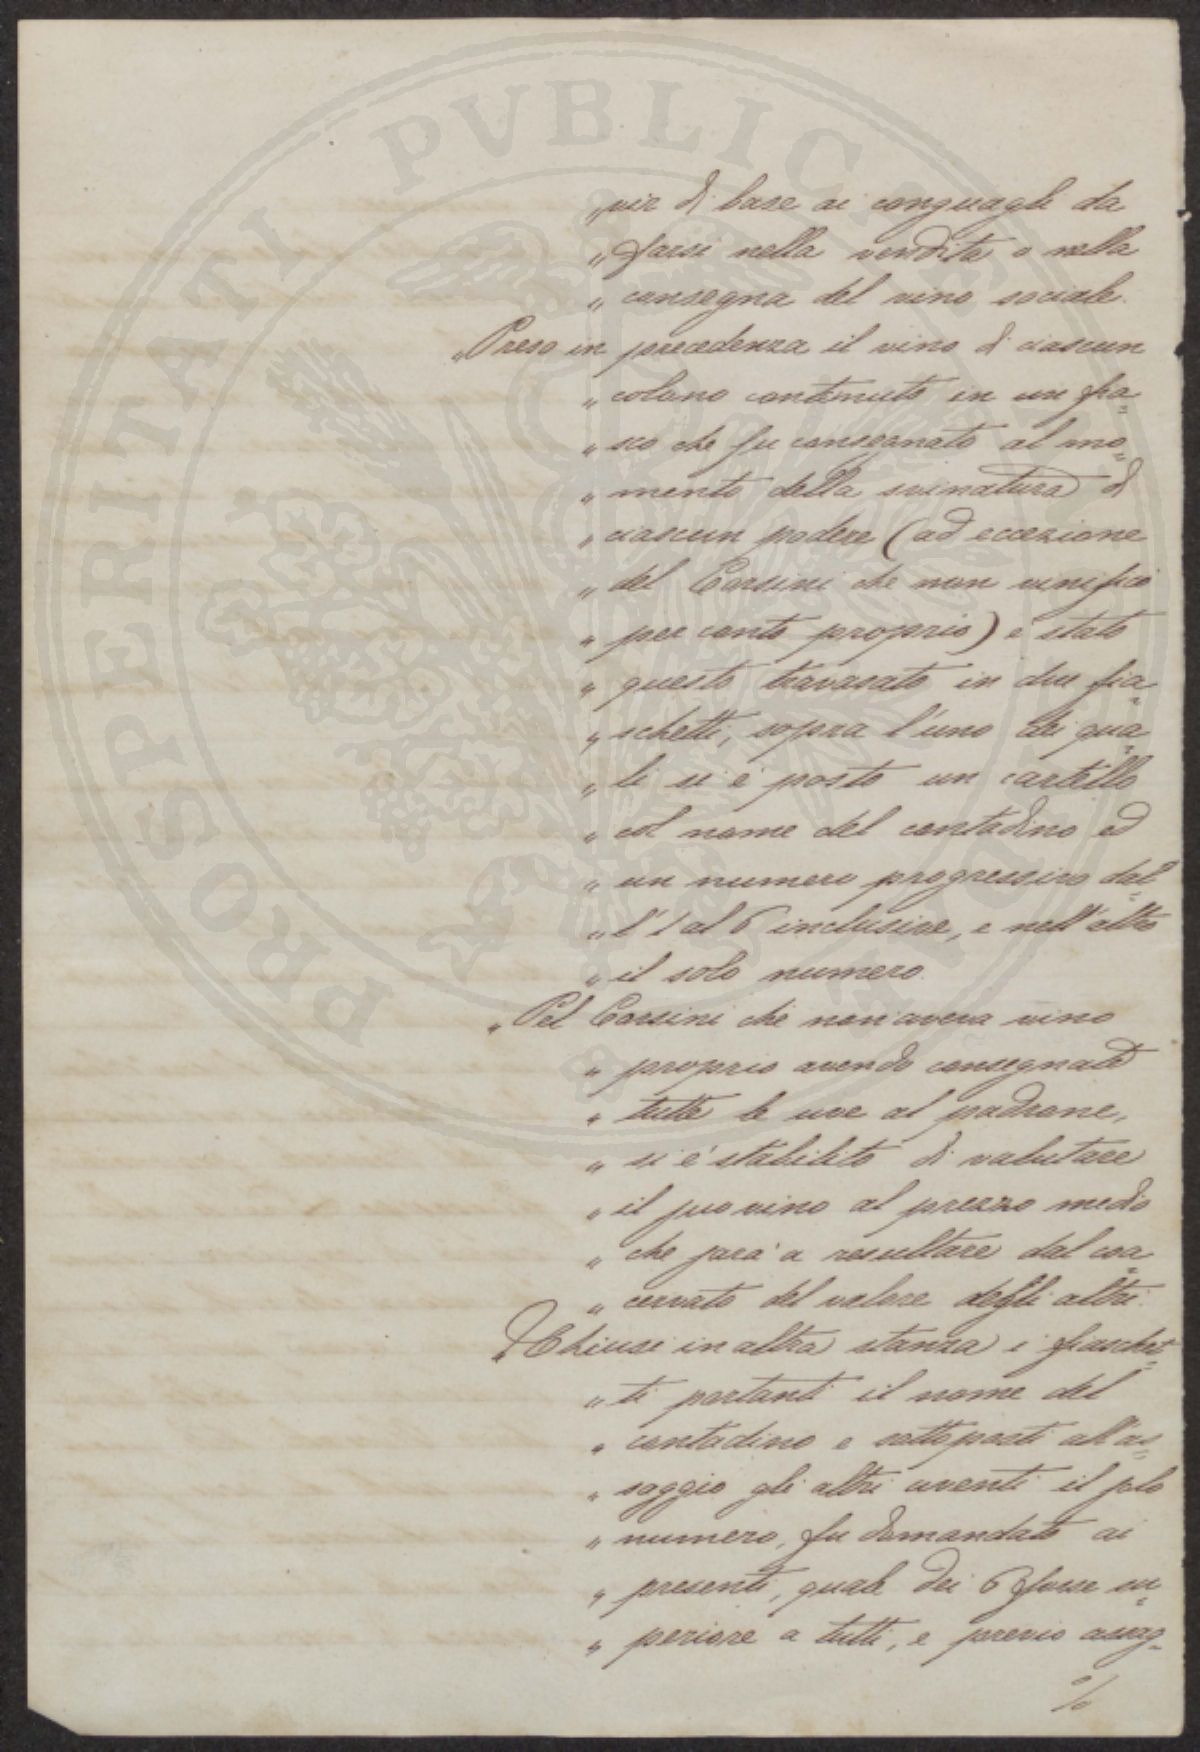 PROSPERITATI PVBLICAE
„ vir di base ai conguagli da
„ farsi nella vendita o nella
„ consegna del vino sociale.
„ Preso in precedenza il vino di ciascun
„ colono contenuto in un fia=
„ sco che fu consegnato al mo=
„ mento della svinatura di
„ ciascun podere (ad eccezione
„ del Corsini che non vinificò
„ per conto proprio) è stato
„ questo travasato in due fia=
„ schetti, sopra l'uno dei qua=
„ li si è posto un cartello
„ col nome del contadino ed
„ un numero progressivo dal=
„ l'1 al 6 inclusive, e nell'altro
„ il solo numero.
„ Pel Corsini che non aveva vino
„ proprio avendo consegnate
„ tutte le uve al padrone,
„ si è stabilito di valutare
„ il suo vino al prezzo medio
„ che sarà a resultare dal coa=
„ cervato del valore degli altri.
„ Chiusi in altra stanza i fiaschet=
„ ti portanti il nome del
„ contadino e sottoposti all'as=
„ saggio gli altri aventi il solo
„ numero, fu domandato ai
„ presenti, quale dei 6 fosse su=
„ periore a tutti, e previo assag=
%